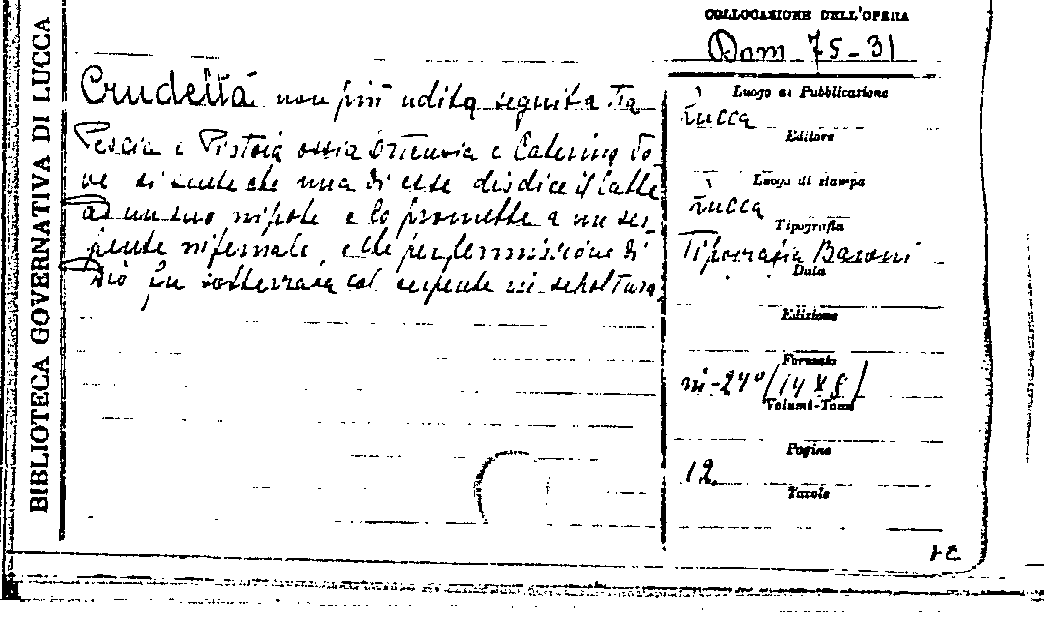 BIBLIOTECA GOVERNATIVA DI LUCCA
COLLOCAZIONE DELL'OPERA
Dom 75-31
Crudeltà non più udita seguita tra
Pescia e Pistoia ossia Ortensia e Caterina Do-
ve si sente che una di esse disdice il latte
ad un suo nipote e lo promette a un ser-
pente infernale, e che per permissione di
Dio fu sotterrata col serpente in sepoltura.
Luogo di Pubblicazione
Lucca
Editore
Luogo di stampa
Lucca
Tipografia
Tipografia Baroni
Data
Edizione
Formato
in-24° (14 x 8)
Volumi-Tomi
Pagine
12
Tavole